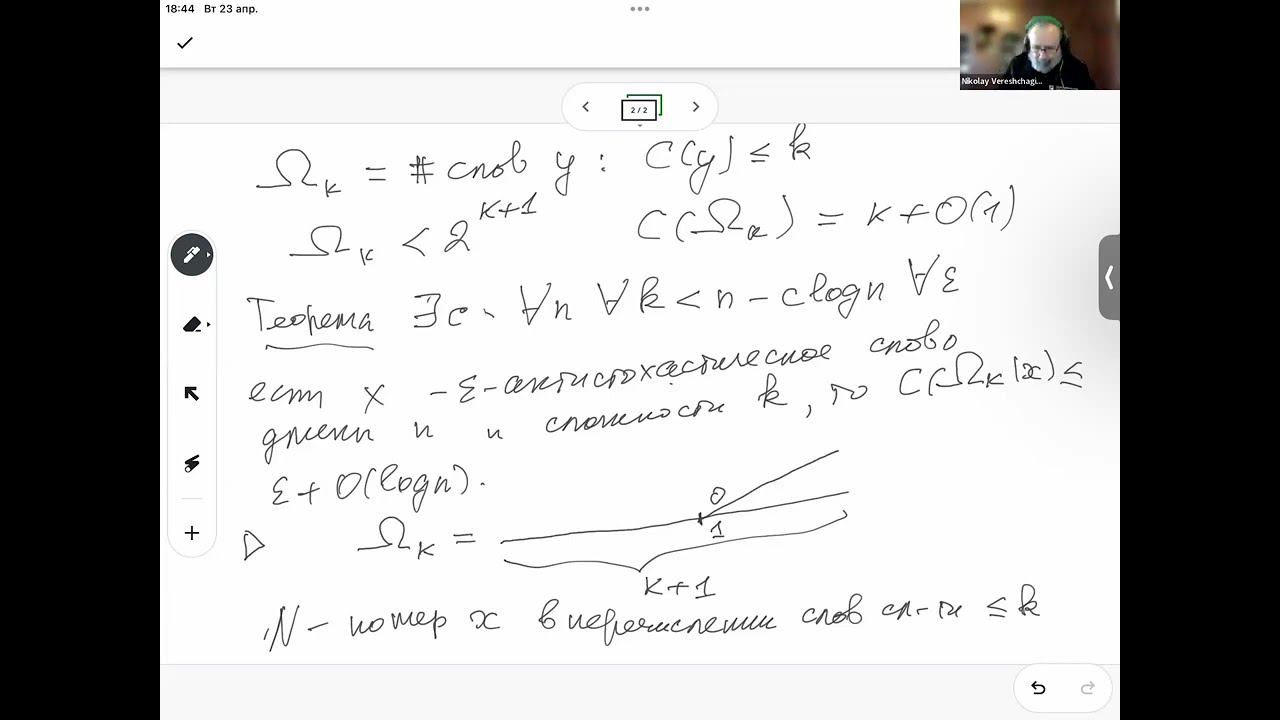 18:44 Вт 23 апр.
Nikolay Vereshchagi...
2 / 2
Ω_k = # слов y : C(y) ≤ k
Ω_k < 2^{k+1} C(Ω_k) = k + O(1)
Теорема ∃c ∀n ∀k < n - c log n ∀ε
если x - ε-антистохастическое слово
длины n и сложности k, то C(Ω_k|x) ≤
ε + O(log n).
0
1
▷ Ω_k =
k+1
N - номер x в перечислении слов сл-ти ≤ k